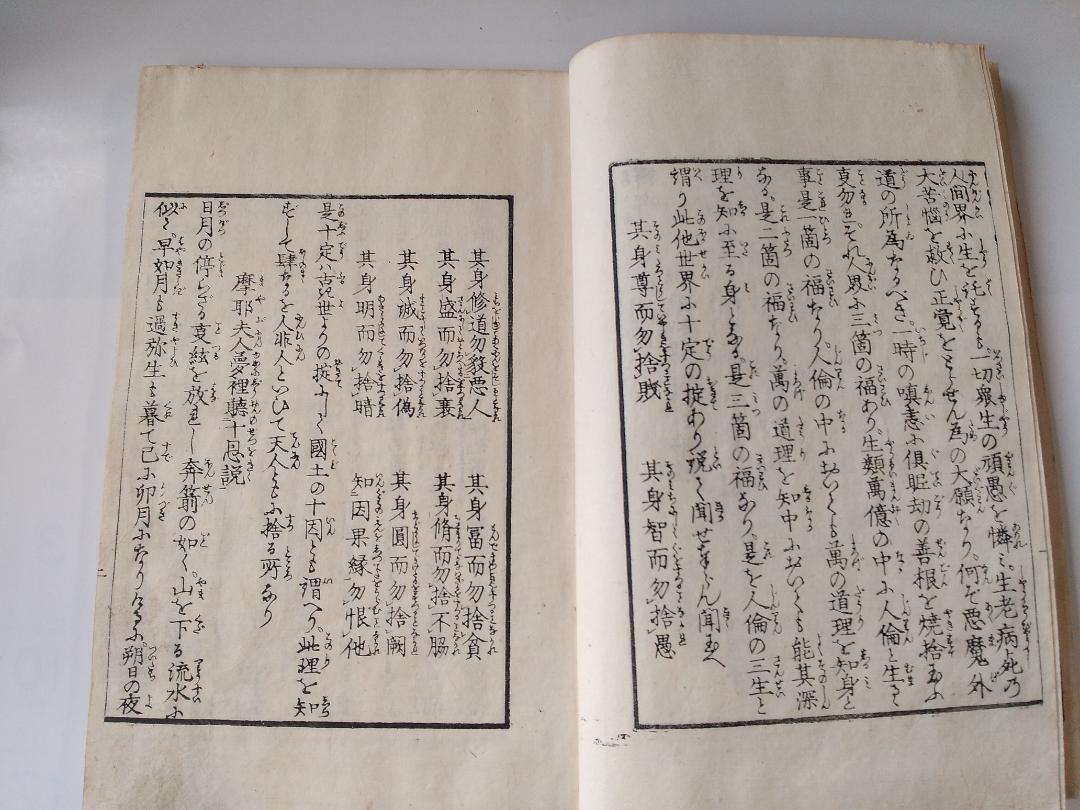 人間界ふ生を托するも一切衆生の頑愚を憐ミ生老病死乃
大苦悩を救ひ正覚をとらせん為の大願なり。何ぞ悪魔外
道の所為なるべき。一時の嗔恚ふ倶胝劫の善根を焼捨玉ふ
事勿れ。それ人界ふ三箇の福あり。生類萬億の中ふ人倫と生るゝ
事是一箇の福なり。人倫の中ふおいても萬の道理を知身と
なる。是二箇の福なり。萬の道理を知中ふおいても能其深
理を知ふ至る身となる。是三箇の福なり。是を人倫の三生と
謂り此他世界ふ十定の掟あり説て聞せ奉らん聞玉へ
其身尊而勿捨賎　其身智而勿捨愚
其身修道勿毀悪人　其身冨而勿捨貧
其身盛而勿捨衰　其身脩而勿捨不脇
其身誠而勿捨偽　其身圓而勿捨闕
其身明而勿捨暗　知因果縁勿恨他
是十定ハ古世よりの掟ふして國土の十因とも謂へり。此理を知
ずして肆なるを人非人といひて天人ともふ捨る所なり
摩耶夫人夢裡聴十恩説
日月の停らざる事絃を放れし奔箭の如く。山を下る流水ふ
似て。早如月も過弥生も暮て已ふ卯月ふなりけるふ。朔日の夜